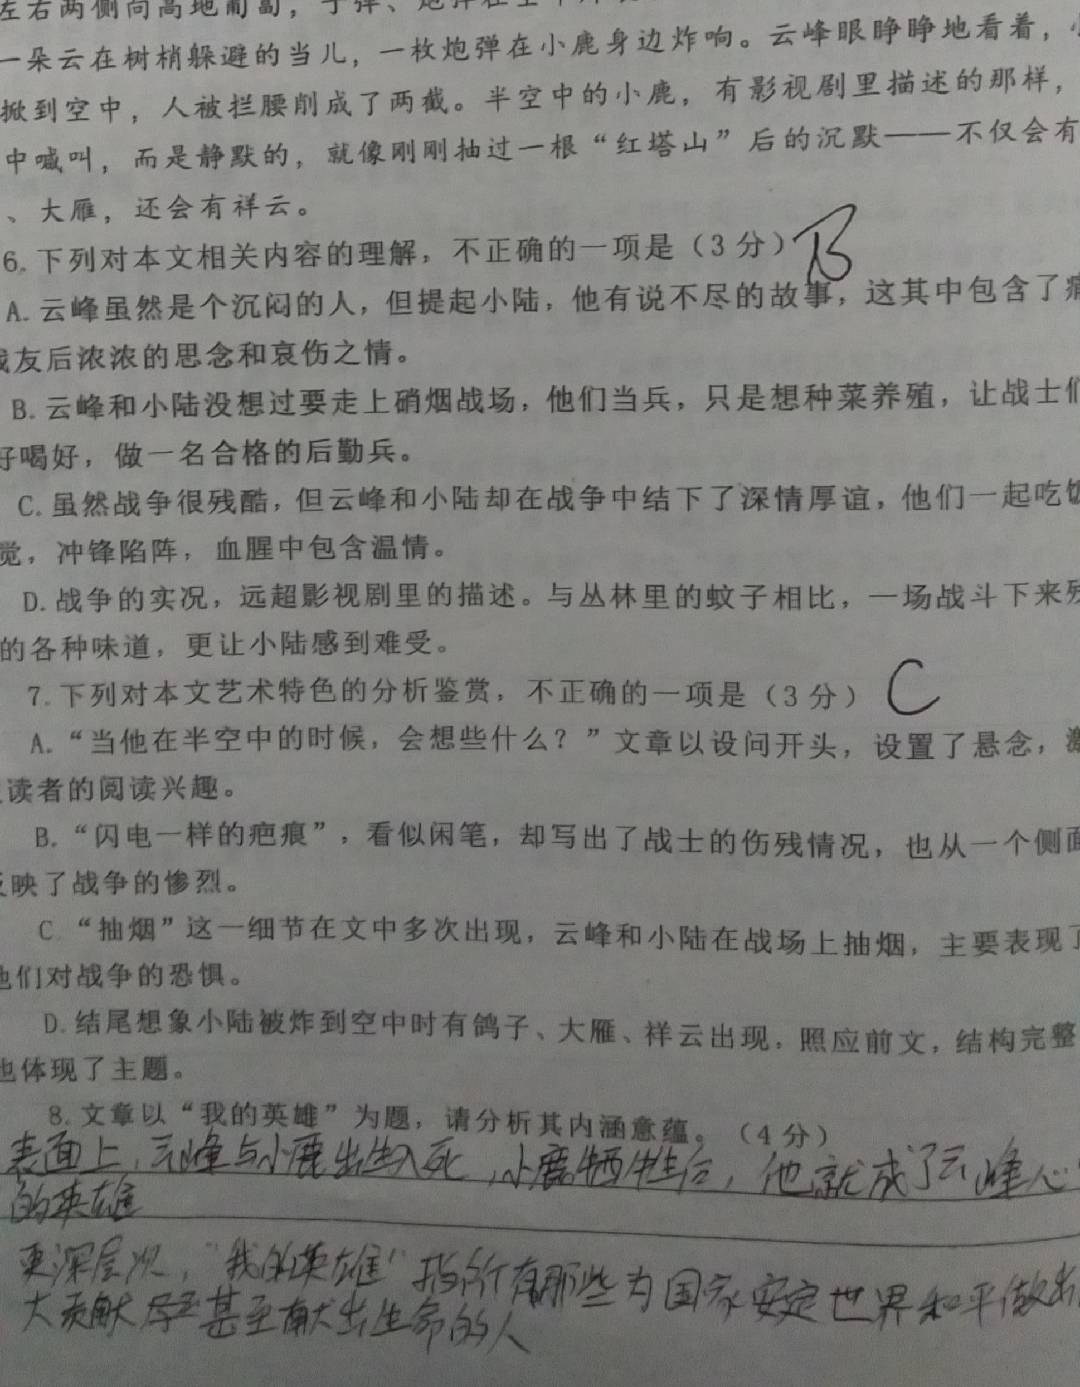 左右两侧向高地匍匐，子弹、炮弹在空中
一朵云在树梢躲避的当儿，一枚炮弹在小鹿身边炸响。云峰眼睁睁地看着，
掀到空中，人被拦腰削成了两截。半空中的小鹿，有影视剧里描述的那样，
中喊叫，而是静默的，就像刚刚抽过一根“红塔山”后的沉默——不仅会有
、大雁，还会有祥云。
6.下列对本文相关内容的理解，不正确的一项是（3分）B
A.云峰虽然是个沉闷的人，但提起小陆，他有说不尽的故事，这其中包含了痛
战友后浓浓的思念和哀伤之情。
B.云峰和小陆没想过要走上硝烟战场，他们当兵，只是想种菜养殖，让战士们
好喝好，做一名合格的后勤兵。
C.虽然战争很残酷，但云峰和小陆却在战争中结下了深情厚谊，他们一起吃饭
觉，冲锋陷阵，血腥中包含温情。
D.战争的实况，远超影视剧里的描述。与丛林里的蚊子相比，一场战斗下来残
的各种味道，更让小陆感到难受。
7.下列对本文艺术特色的分析鉴赏，不正确的一项是（3分）C
A.“当他在半空中的时候，会想些什么？”文章以设问开头，设置了悬念，激
读者的阅读兴趣。
B.“闪电一样的疤痕”，看似闲笔，却写出了战士的伤残情况，也从一个侧面
反映了战争的惨烈。
C“抽烟”这一细节在文中多次出现，云峰和小陆在战场上抽烟，主要表现了
他们对战争的恐惧。
D.结尾想象小陆被炸到空中时有鸽子、大雁、祥云出现，照应前文，结构完整
也体现了主题。
8.文章以“我的英雄”为题，请分析其内涵意蕴。（4分）
表面上，云峰与小鹿出生入死，小鹿牺牲后，他就成了云峰心
的英雄
更深层次，“我的英雄”指所有那些为国家安定世界和平做出
大贡献甚至献出生命的人